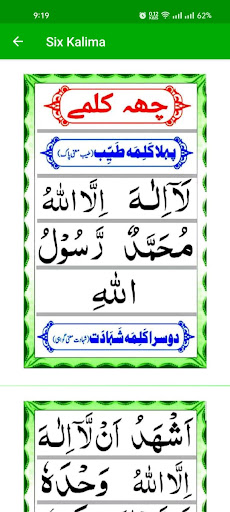 9:19 62%
Six Kalima
چھہ کلمے
پہلا کلمہ طَیِّب (طیب معنی پاک)
لَآ اِلٰهَ اِلَّا اللهُ
مُحَمَّدٌ رَّسُوْلُ
اللهِ
دوسرا کلمہ شہادت (شہادت معنی گواہی)
اَشْهَدُ اَنْ لَّآ اِلٰهَ
اِلَّا اللهُ وَحْدَهٗ